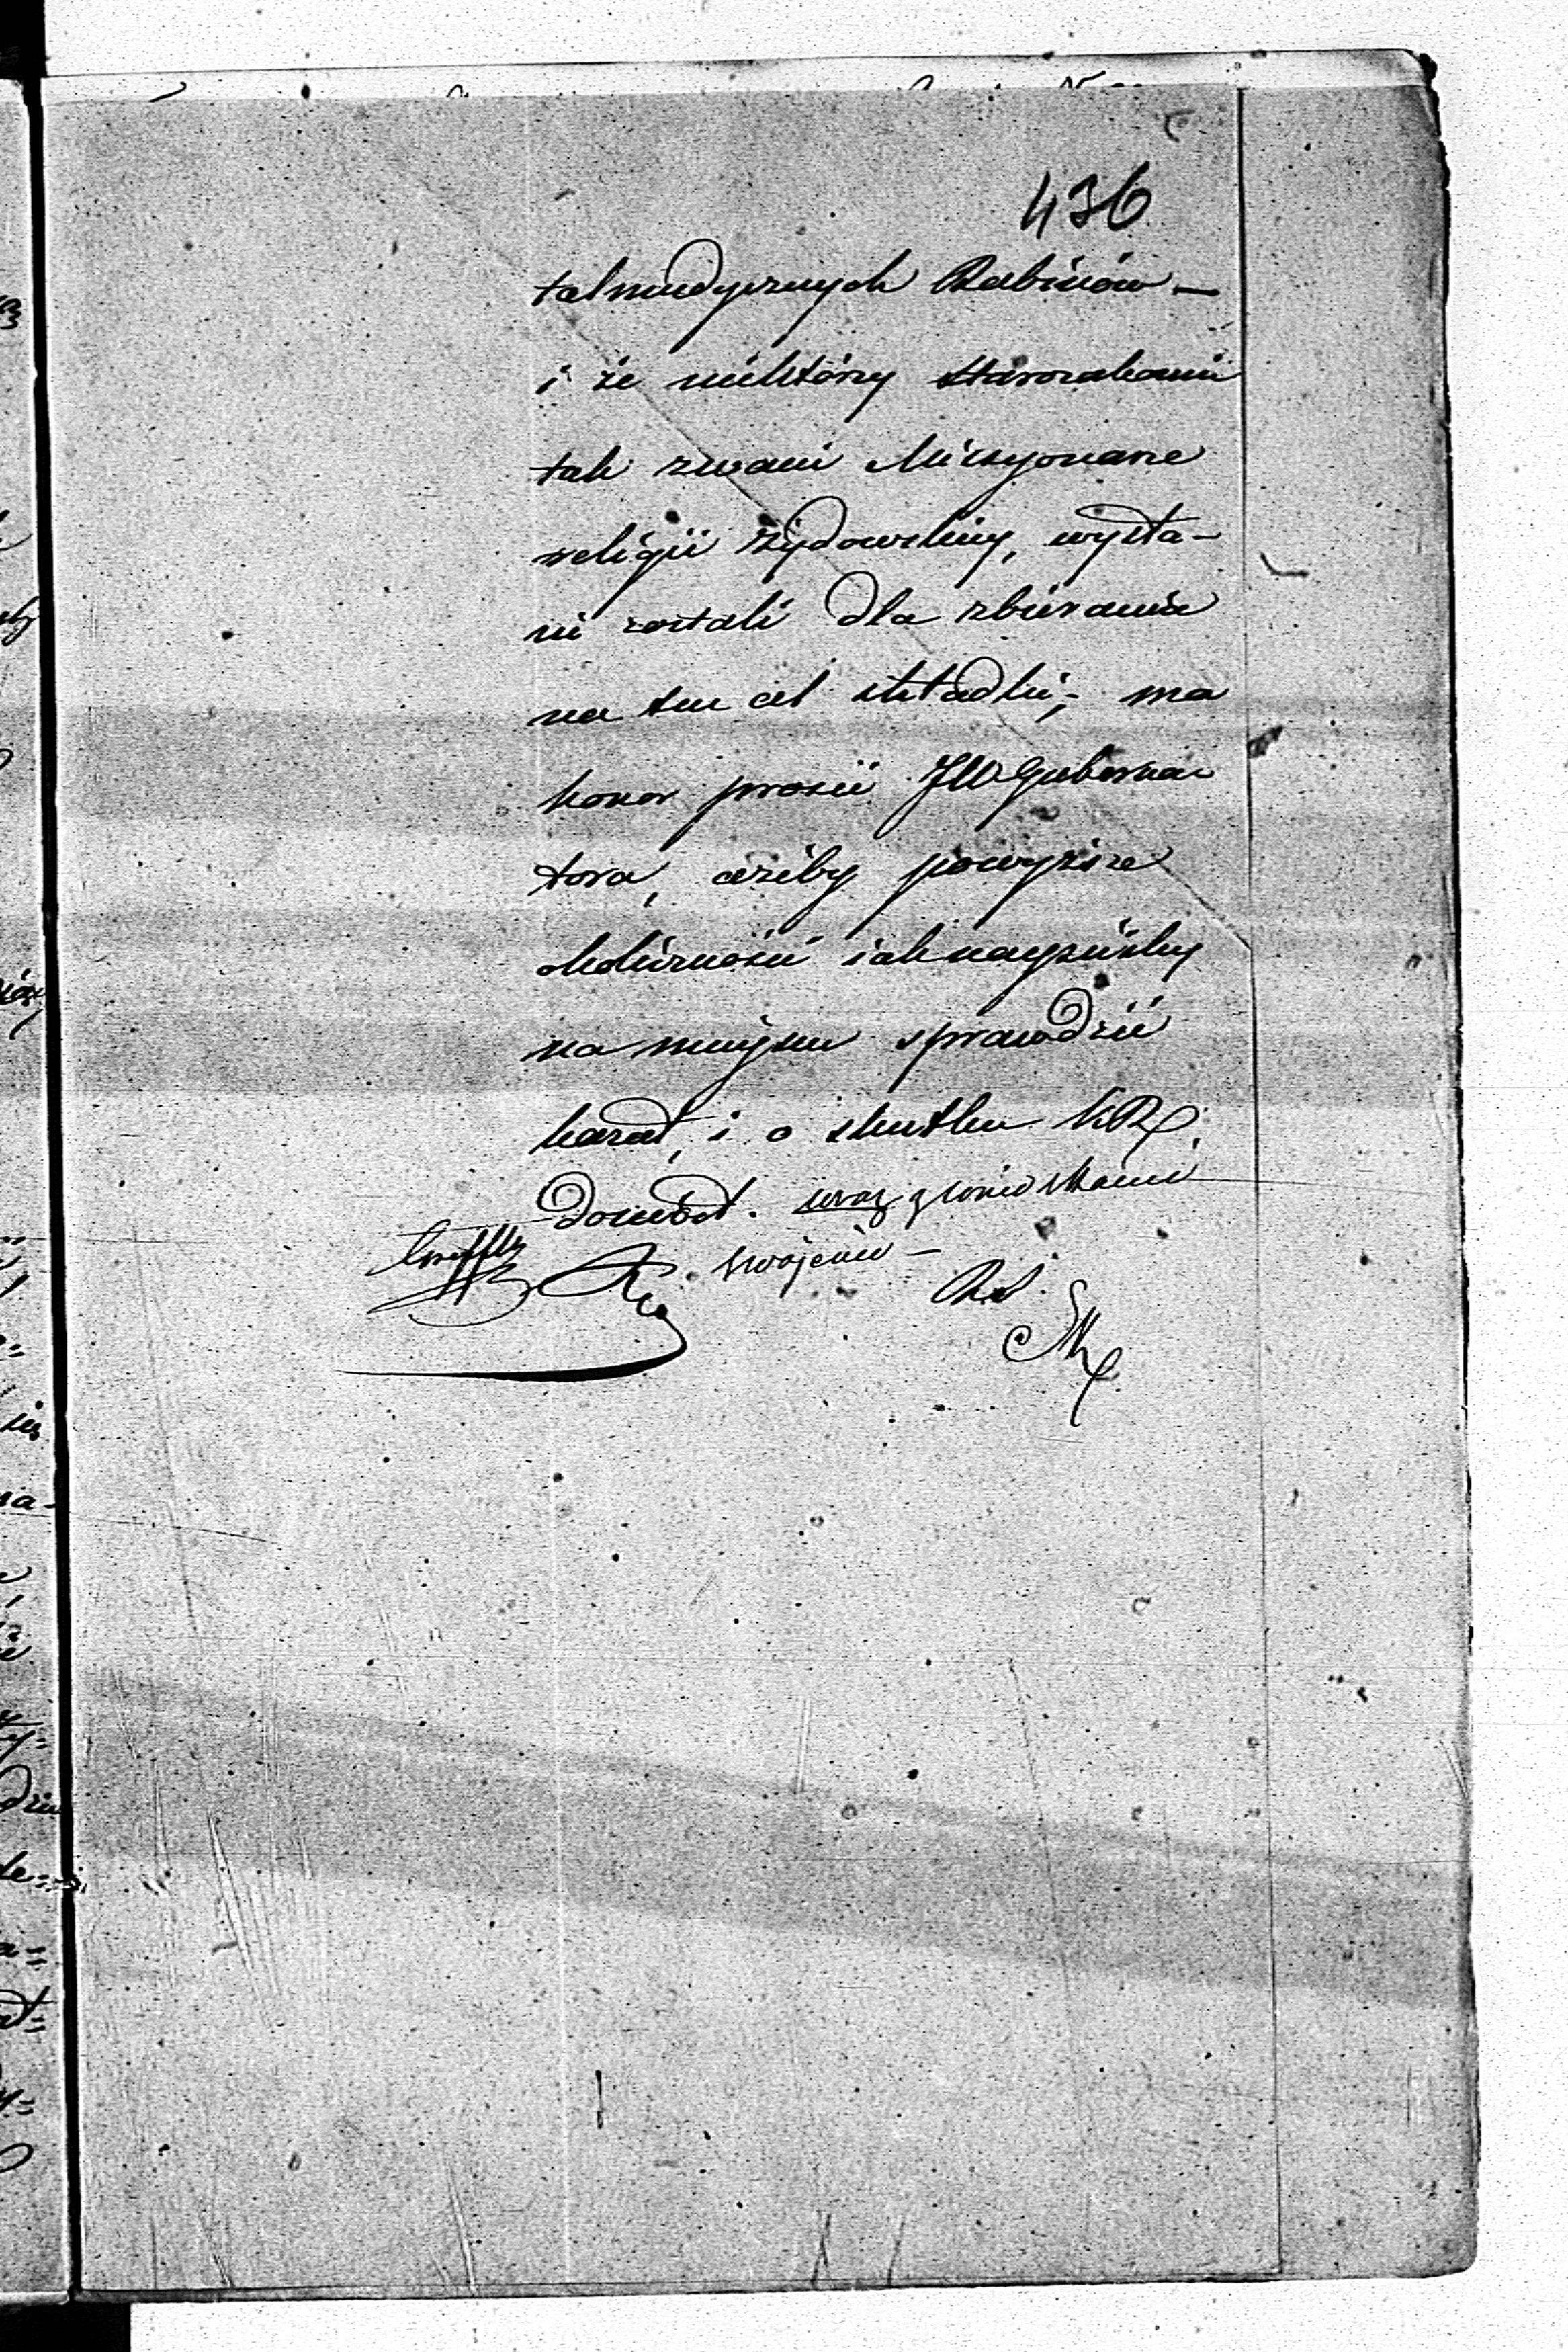 436
talmudycznych Rabinów —
i że niektórzy starozakonni
tak zwani Missyonarze
religii żydowskiey, wysła-
ni zostali dla zbierania
na ten cel składki; ma
honor prosić JW Guberna
tora, ażeby powyższe
okoliczności iak nayspieszniey
na mieyscu sprawdzić
kazał, i o skutku KR
doniósł. wraz z wnioskami
swojemi —